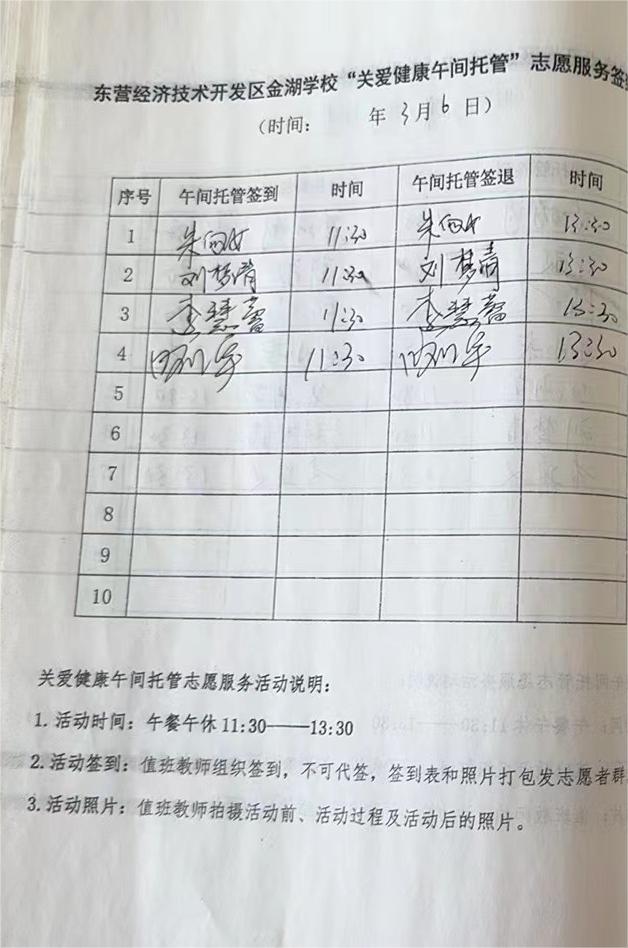 东营经济技术开发区金湖学校“关爱健康午间托管”志愿服务签
（时间： 年3月6日）
序号 午间托管签到 时间 午间托管签退 时间
1 朱 11:30 朱 13:30
2 刘梦清 11:30 刘梦清 13:30
3 李慧蕾 11:30 李慧蕾 13:30
4 11:30 13:30
5
6
7
8
9
10
关爱健康午间托管志愿服务活动说明：
1.活动时间：午餐午休11:30——13:30
2.活动签到：值班教师组织签到，不可代签，签到表和照片打包发志愿者群
3.活动照片：值班教师拍摄活动前、活动过程及活动后的照片。